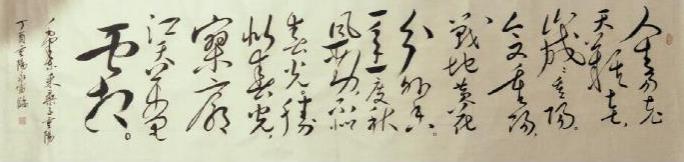 人生易老
天难老，
岁岁重阳。
今又重阳，
战地黄花
分外香。
一年一度秋
风劲，不似
春光。胜
似春光，
寥廓
江天万里
霜。
毛泽东采桑子重阳
丁酉